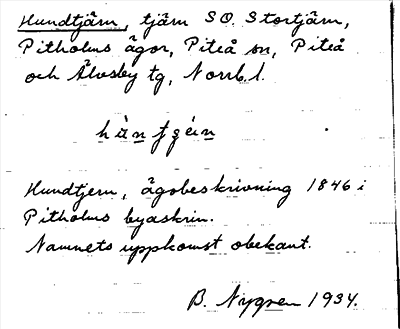 Hundtjärn, tjärn SO. Stortjärn,
Pitholms ägor, Piteå sn, Piteå
och Älvsby tg, Norrb. l.
Hundtjern, ägobeskrivning 1846 i
Pitholms byaskrin.
Namnets uppkomst obekant.
B. Nygren 1934.